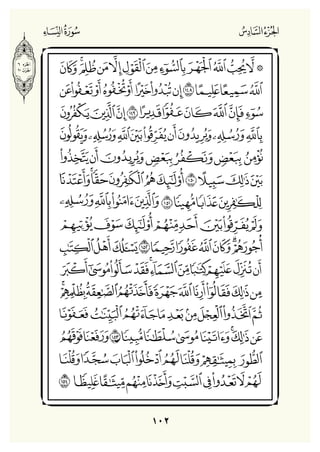 الجزء السادس سورة النساء
۞ لَّا يُحِبُّ ٱللَّهُ ٱلْجَهْرَ بِٱلسُّوٓءِ مِنَ ٱلْقَوْلِ إِلَّا مَن ظُلِمَ ۚ وَكَانَ
ٱللَّهُ سَمِيعًا عَلِيمًا ١٤٨ إِن تُبْدُوا۟ خَيْرًا أَوْ تُخْفُوهُ أَوْ تَعْفُوا۟ عَن
سُوٓءٍ فَإِنَّ ٱللَّهَ كَانَ عَفُوًّا قَدِيرًا ١٤٩ إِنَّ ٱلَّذِينَ يَكْفُرُونَ
بِٱللَّهِ وَرُسُلِهِۦ وَيُرِيدُونَ أَن يُفَرِّقُوا۟ بَيْنَ ٱللَّهِ وَرُسُلِهِۦ وَيَقُولُونَ
نُؤْمِنُ بِبَعْضٍ وَنَكْفُرُ بِبَعْضٍ وَيُرِيدُونَ أَن يَتَّخِذُوا۟
بَيْنَ ذَٰلِكَ سَبِيلًا ١٥٠ أُو۟لَٰٓئِكَ هُمُ ٱلْكَٰفِرُونَ حَقًّا ۚ وَأَعْتَدْنَا
لِلْكَٰفِرِينَ عَذَابًا مُّهِينًا ١٥١ وَٱلَّذِينَ ءَامَنُوا۟ بِٱللَّهِ وَرُسُلِهِۦ
وَلَمْ يُفَرِّقُوا۟ بَيْنَ أَحَدٍ مِّنْهُمْ أُو۟لَٰٓئِكَ سَوْفَ يُؤْتِيهِمْ
أُجُورَهُمْ ۗ وَكَانَ ٱللَّهُ غَفُورًا رَّحِيمًا ١٥٢ يَسْـَٔلُكَ أَهْلُ ٱلْكِتَٰبِ
أَن تُنَزِّلَ عَلَيْهِمْ كِتَٰبًا مِّنَ ٱلسَّمَآءِ ۚ فَقَدْ سَأَلُوا۟ مُوسَىٰٓ أَكْبَرَ
مِن ذَٰلِكَ فَقَالُوٓا۟ أَرِنَا ٱللَّهَ جَهْرَةً فَأَخَذَتْهُمُ ٱلصَّٰعِقَةُ بِظُلْمِهِمْ ۚ
ثُمَّ ٱتَّخَذُوا۟ ٱلْعِجْلَ مِنۢ بَعْدِ مَا جَآءَتْهُمُ ٱلْبَيِّنَٰتُ فَعَفَوْنَا
عَن ذَٰلِكَ ۚ وَءَاتَيْنَا مُوسَىٰ سُلْطَٰنًا مُّبِينًا ١٥٣ وَرَفَعْنَا فَوْقَهُمُ
ٱلطُّورَ بِمِيثَٰقِهِمْ وَقُلْنَا لَهُمُ ٱدْخُلُوا۟ ٱلْبَابَ سُجَّدًا وَقُلْنَا
لَهُمْ لَا تَعْدُوا۟ فِى ٱلسَّبْتِ وَأَخَذْنَا مِنْهُم مِّيثَٰقًا غَلِيظًا ١٥٤
١٠٢